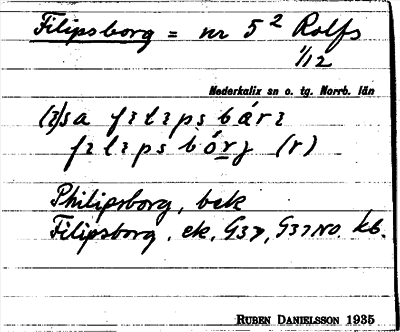 Filipsborg = nr 5² Rolfs
1/12
Nederkalix sn o. tg. Norrb. län
Philipsborg, bek
Filipsborg, ek, G37, G37NO. Kb.
RUBEN DANIELSSON 1935